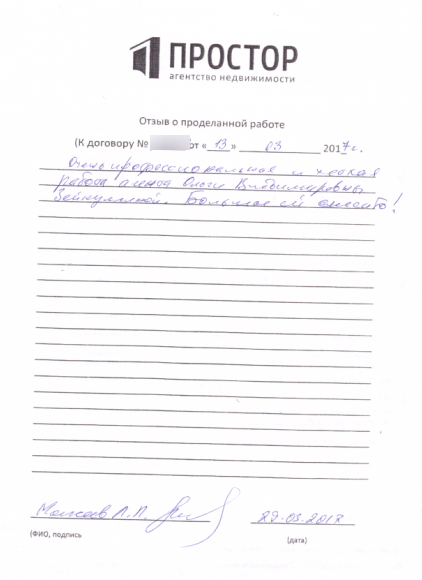 ПРОСТОР
агентство недвижимости
Отзыв о проделанной работе
(К договору № от «13» 03 2017г.
Очень профессиональная и
работа агента Ольги Владимировны
Большое ей спасибо!
29.05.2017
(ФИО, подпись
(дата)